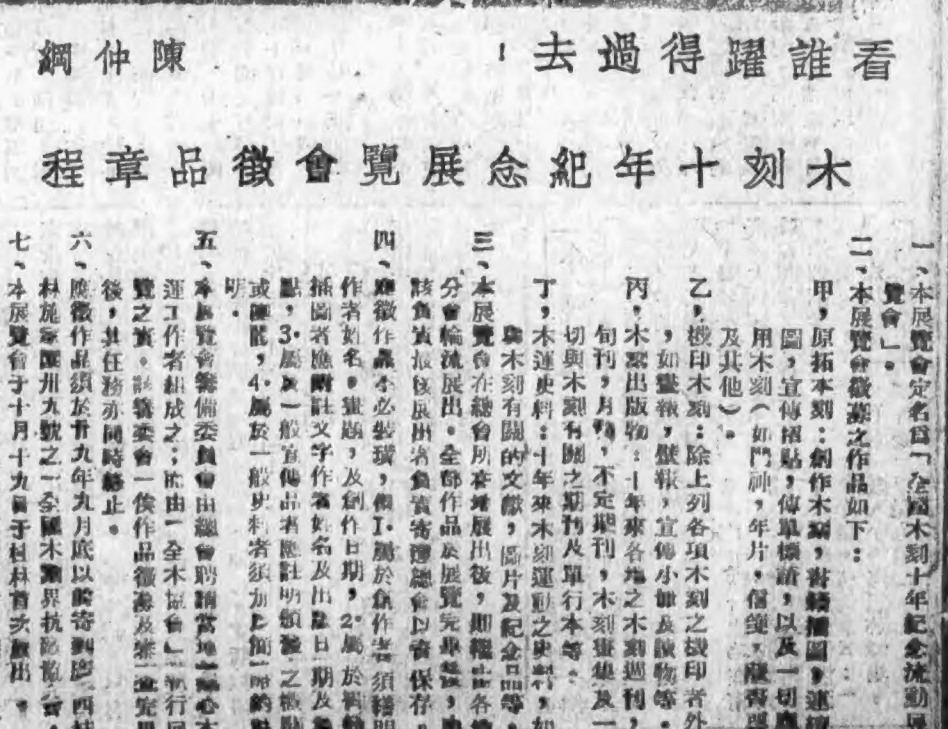 看誰躍得過去!
陳仲綱
木刻十年紀念展覽會徵品章程
一、本展覽會定名爲「全國木刻十年紀念流動展
覽會」。
二、本展覽會徵募之作品如下：
甲，原拓木刻：創作木刻，書籍插圖，連續
圖，宣傳招貼，傳單標語，以及一切應
用木刻（如門神，年片，信箋，藏書
及其他）。
乙，機印木刻：除上列各項木刻之機印者外
，如畫報，壁報，宣傳小冊及讀物等。
丙，木刻出版物：十年來各地之木刻週刊，
旬刊，月刊，不定期刊，木刻畫集及一
切與木刻有關之期刊及單行本等。
丁，木運史料：十年來木刻運動之史料，如
與木刻有關的文獻，圖片及紀念品等。
三、本展覽會在總會所在地展出後，即
分會輪流展出。全部作品於展覽完畢後，由
該負責最後展出者負責寄還總會以資保存。
四、應徵作品不必裝璜，但1.屬於創作者須
作者姓名。畫題，及創作日期，2.屬於
插圖者應附註文字作者姓名及出版日期及
點，3.屬於一般宣傳品者應註明頒發之
或機關，4.屬於一般史料者須加上簡
明。
五、本展覽會籌備委員會由總會聘請當地
運工作者組成之；即由「全木協會」執行
覽之責。該籌委會一俟作品徵募及
後，其任務亦同時終止。
六、應徵作品須於廿九年九月底以前寄到
林施家園卅九號之一全國木刻界抗敵協會。
七、本展覽會于十月十九日于桂林首次展出。